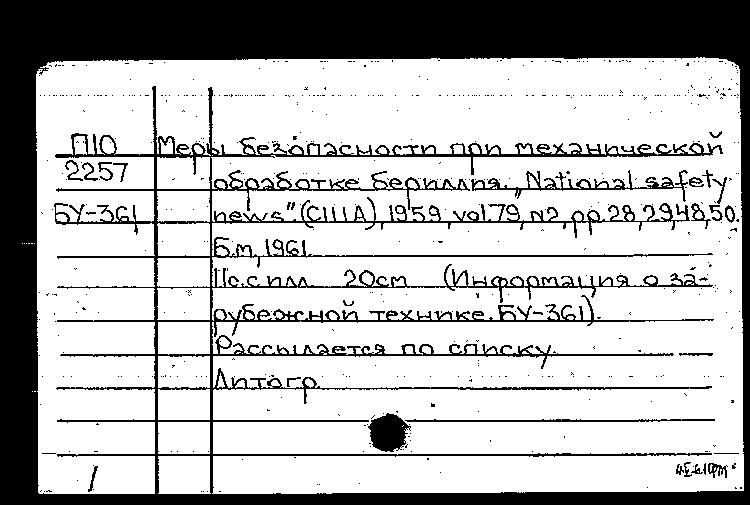 П10 Меры безопасности при механической
2257 обработке бериллия. „National safety
БУ-361 news" (США), 1959, vol.79, N2, pp.28,29,48,50.
Б.м., 1961.
11с. с илл. 20см (Информация о за-
рубежной технике. БУ-361).
Рассылается по списку.
Литогр.
1